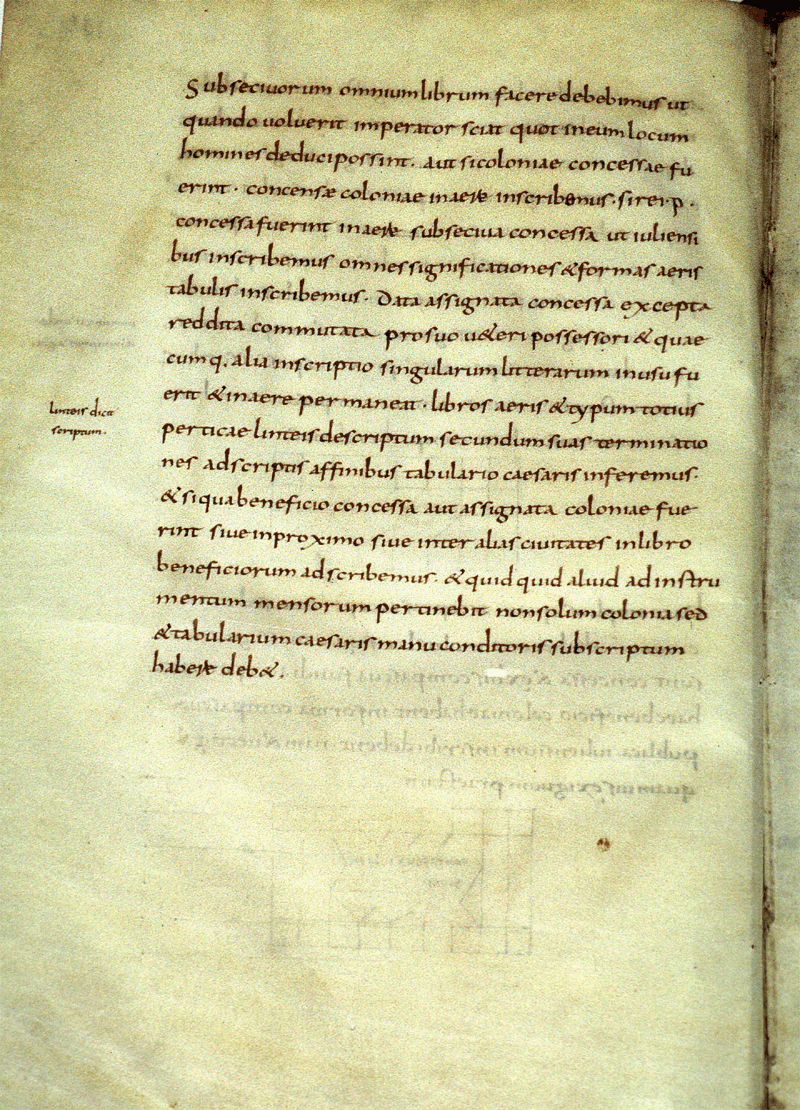 Subseciuorum omnium librum facere debebimus ut
quando uoluerit imperator sciat quot ineum locum
homines deduci possint. aut si coloniae concessae fu
erint. concensæ coloniae inaere inscribemus. si rei. p.
concessa fuerint inaere subseciua concessa ut iuliensi
bus inscribemus omnes significationes & formas aeris
tabulis inscribemus. Data assignata concessa excepta
reddita commutata prosuo u&eri possessori & quae
cumq. alia inscriptio singularum litterarum inusu fu
erit & inaere permaneat. libros aeris & typum totius
perticae linteis descriptum secundum suas terminatio
nes adscriptis affinibus tabulario caesaris inferemus.
& siqua beneficio concessa aut assignata coloniae fue
rint siue inproximo siue inter alias ciuitates inlibro
beneficiorum adscribemus. & quid quid aliud ad instru
mentum mensorum pertinebit non solum colonia sed
& tabularium caesaris manu conditoris subscriptum
habere deb&.
linteis dicit
scriptum.